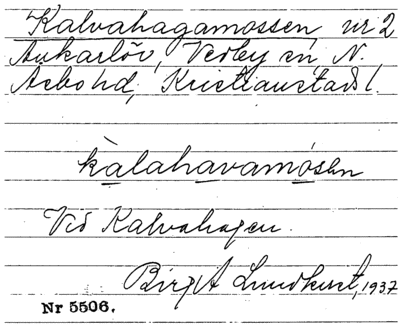 Kalvahagamossen, nr 2
Ankarlöv, Verby sn N.
Åsbo hd, Kristianstads l.
kalahavamosen
Vid Kalvahagen.
Birgit Lundkvist, 1937
Nr 5506.